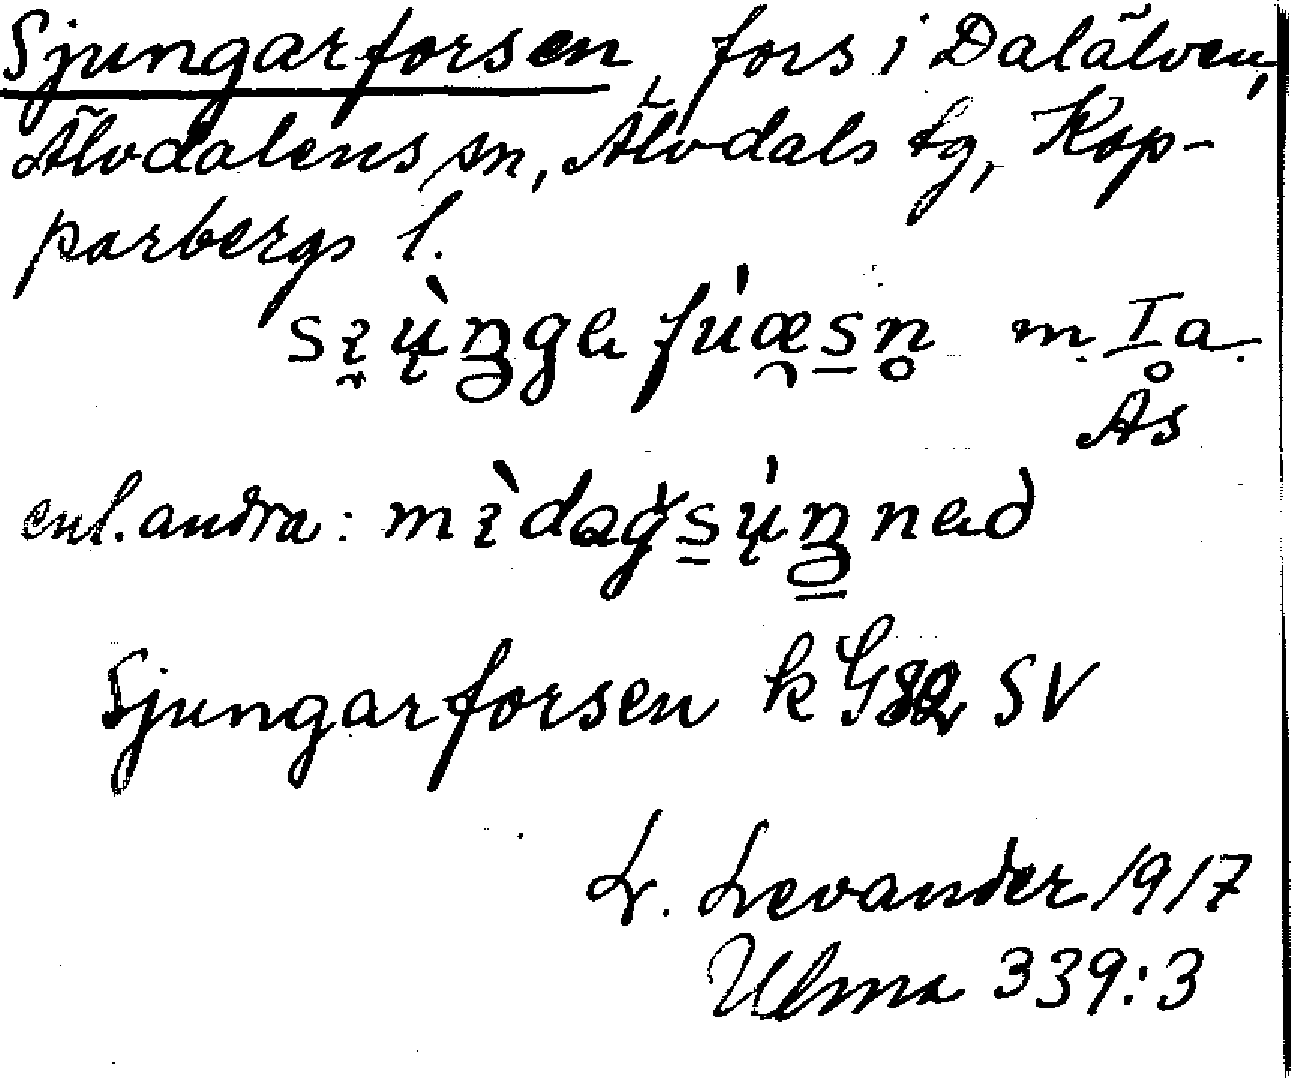 Sjungarforsen, fors i Dalälven,
Älvdalens sn, Älvdals tg, Kop-
parbergs l.
m. I a.
Ås
enl. andra:
Sjungarforsen k G82 SV
L. Levander 1917
Ulma 339:3